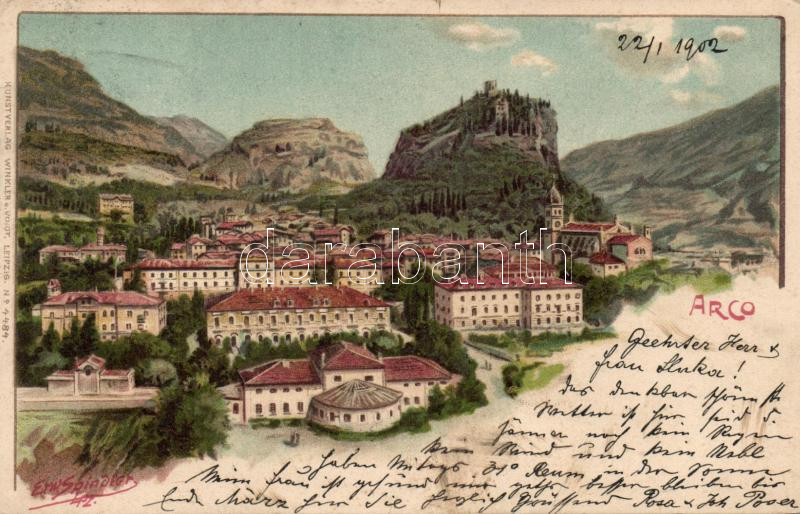 22/1 1902
KUNSTVERLAG WINKLER & VOIGT, LEIPZIG. No 4484.
darabanth
ARCO
Geehrter Herr &
Frau Sluka!
Das denkbar schönste
Wetter ist hier seit d.
Jänner noch kein Regen
kein Wind und kein Nebl
haben Mittags 31° Reum in der Sonne
Meine Frau ist gesund und bleiben bis
Ende März hier Sie herzlich Grüssend Rosa & Joh Poser
Erw Spindler